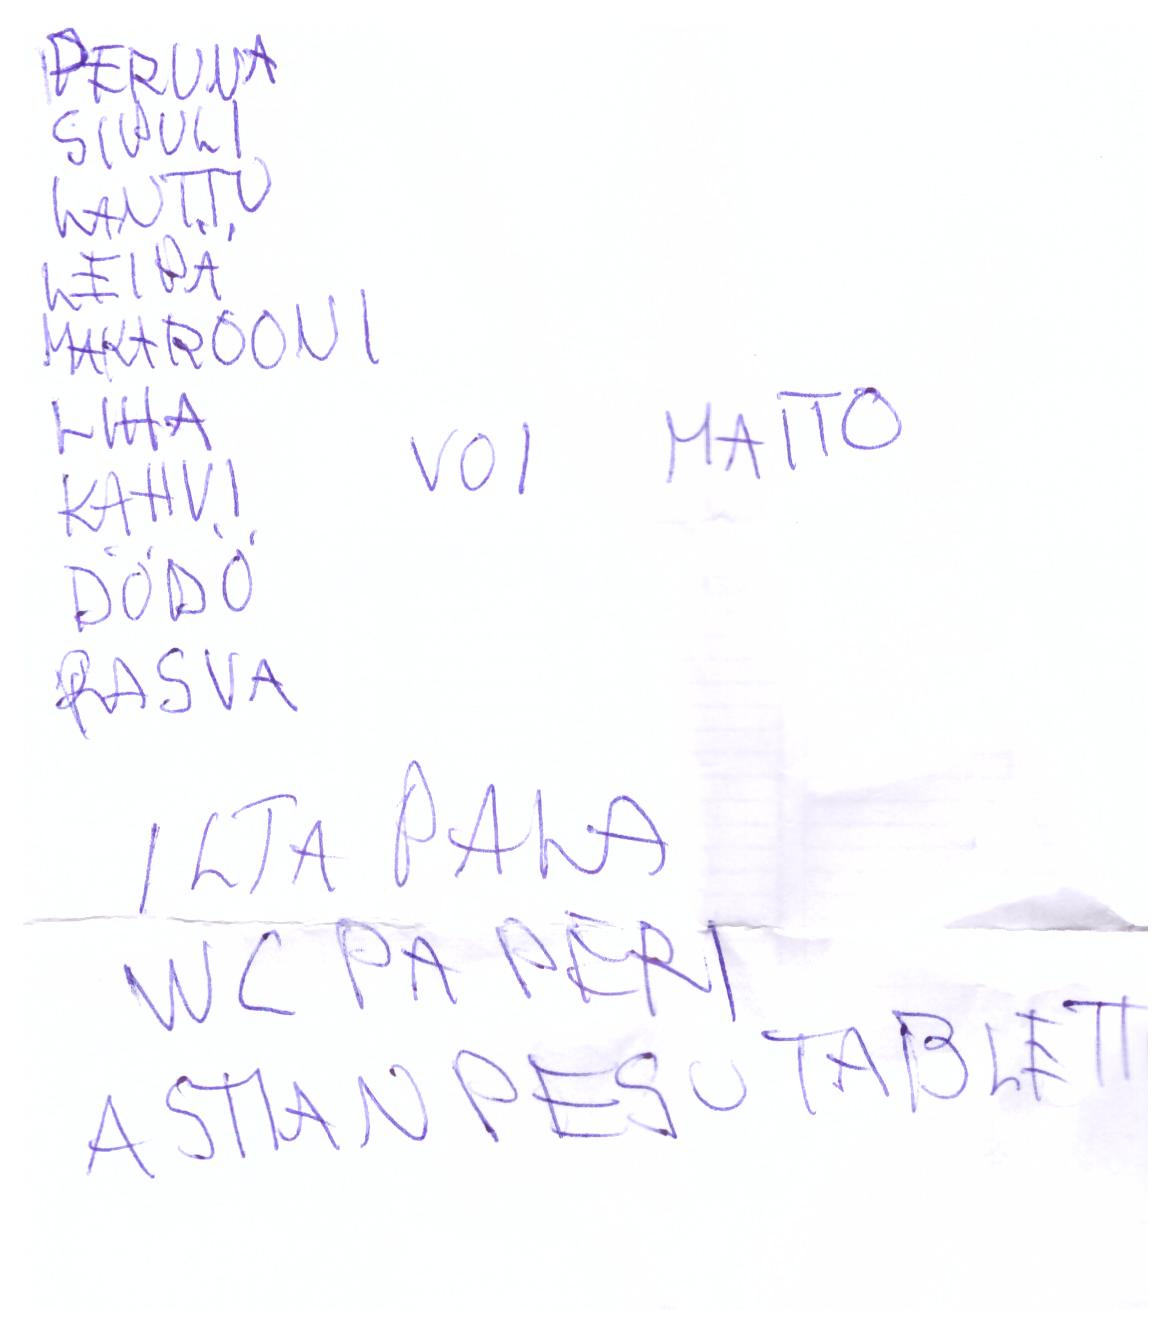 PERUNA
SIPULI
LANTTU
LEIPÄ
MAKAROONI
LIHA
KAHVI VOI MAITO
DÖDÖ
RASVA
ILTA PALA
WC PA PERI
ASTIANPESU TABLETT